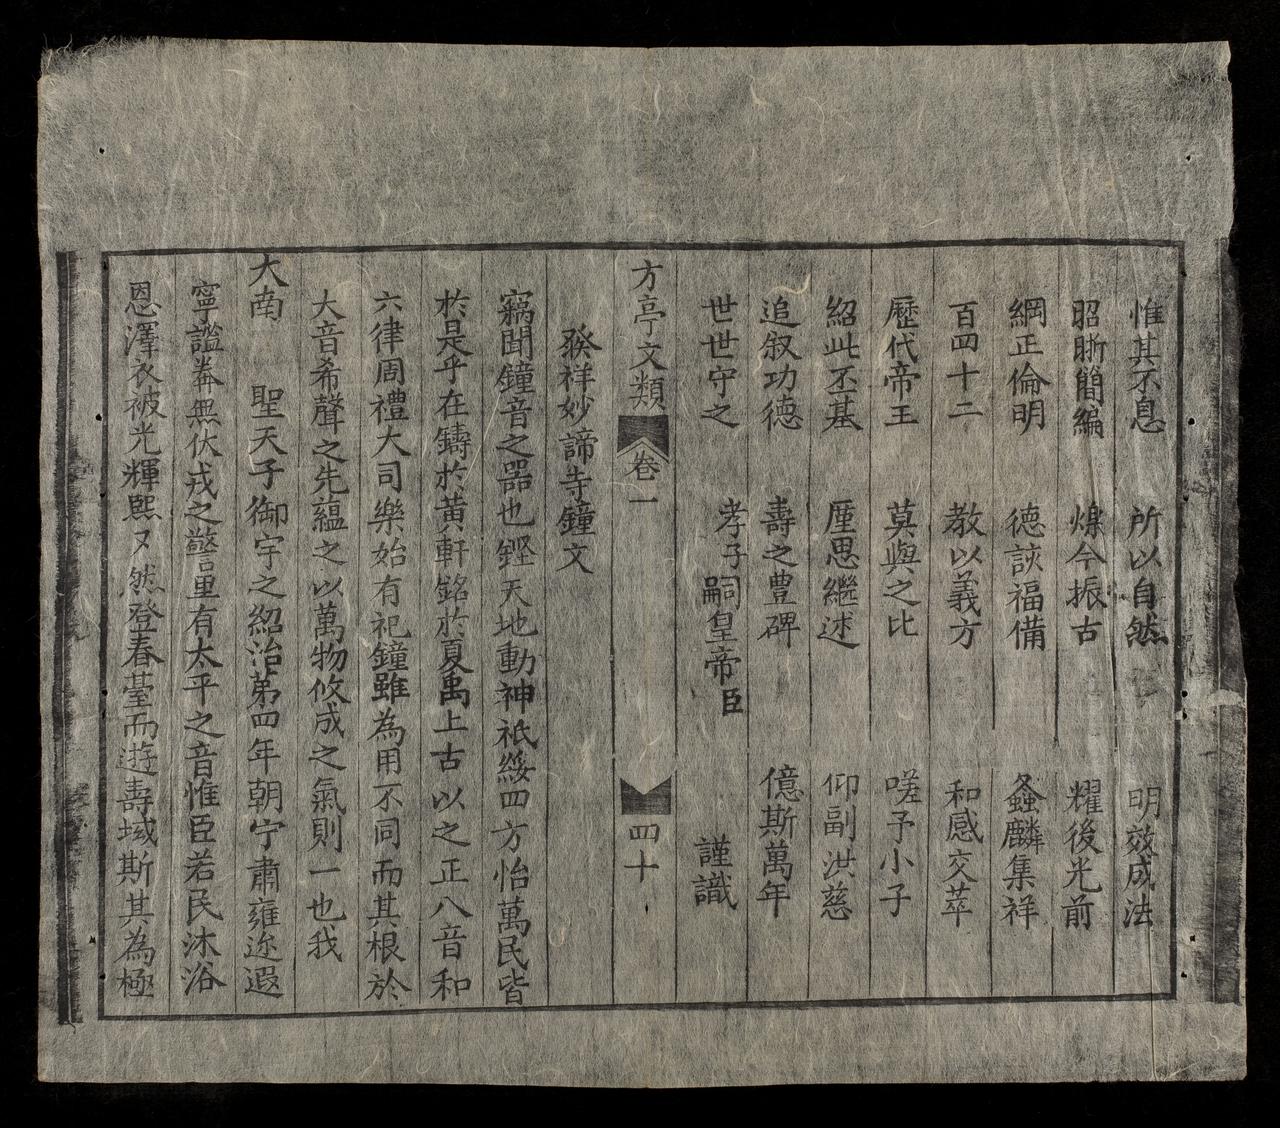 惟其不息 所以自然 明效成法
昭晣簡編 煥今振古 耀後光前
綱正倫明 德詼福備 螽麟集祥
百四十二 教以義方 和感交萃
歷代帝王 莫與之比 嗟予小子
紹此丕基 厪思繼述 仰副洪慈
追叙功德 壽之豊碑 億斯萬年
世世守之 孝子嗣皇帝臣 謹識
方亭文類 卷一 四十
發祥妙諦寺鐘文
竊聞鐘音之器也鏗天地動神祇綏四方怡萬民皆
於是乎在鑄於黃軒銘於夏禹上古以之正八音和
六律周禮大司樂始有祀鐘雖為用不同而其根於
大音希聲之先蘊之以萬物攸成之氣則一也我
大南 聖天子御宇之紹治第四年朝宁肅雍迩遐
寧謐莽無伏戎之警里有太平之音惟臣若民沐浴
恩澤衣被光輝熙々然登春臺而遊壽域斯其為極